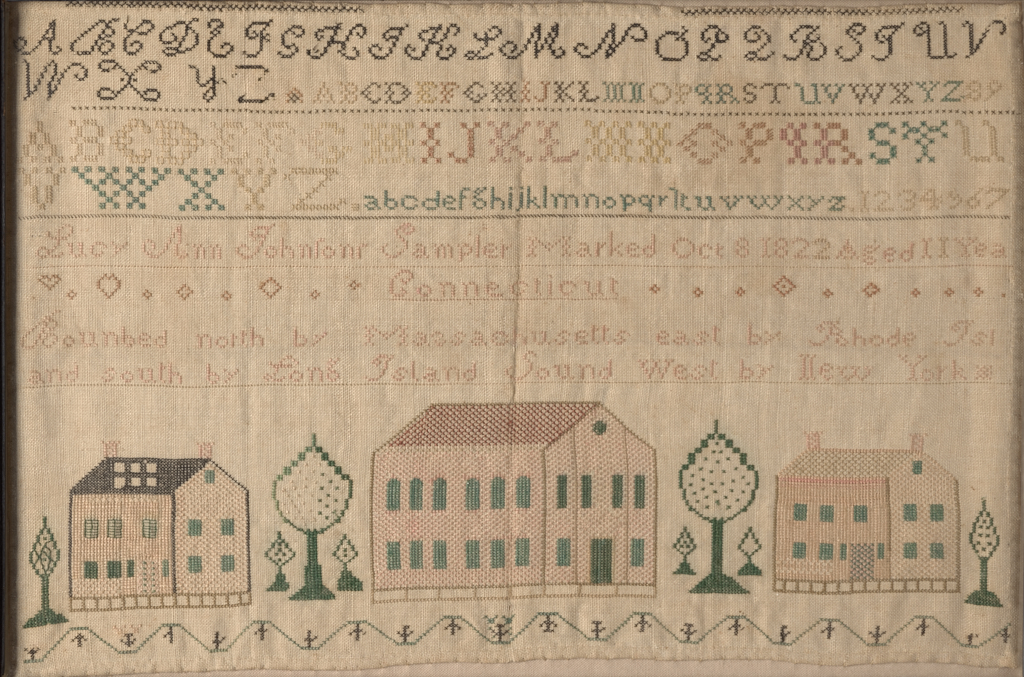 A B C D E F G H I K L M N O P Q R S T U V
W X Y Z A B C D E F G H I J K L M N O P Q R S T U V W X Y Z 8 9
A B C D E F G H I J K L M N O P Q R S T U
V W X Y Z a b c d e f g h i j k l m n o p q r ſ t u v w x y z 1 2 3 4 5 6 7
Lucy Ann Johnſons Sampler Marked Oct 8 1822 Aged 11 Yea
Connecticut
Bounded north by Massachusetts east by Rhode Isl
and south by Long Island Sound West by New York